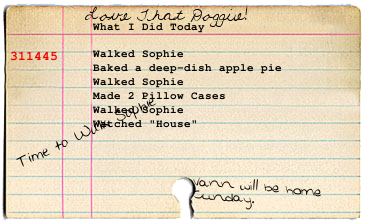 Love That Doggie!
What I Did Today
311445
Walked Sophie
Baked a deep-dish apple pie
Walked Sophie
Made 2 Pillow Cases
Walked Sophie
Watched "House"
Time to Walk Sophie
Vann will be home
Sunday.